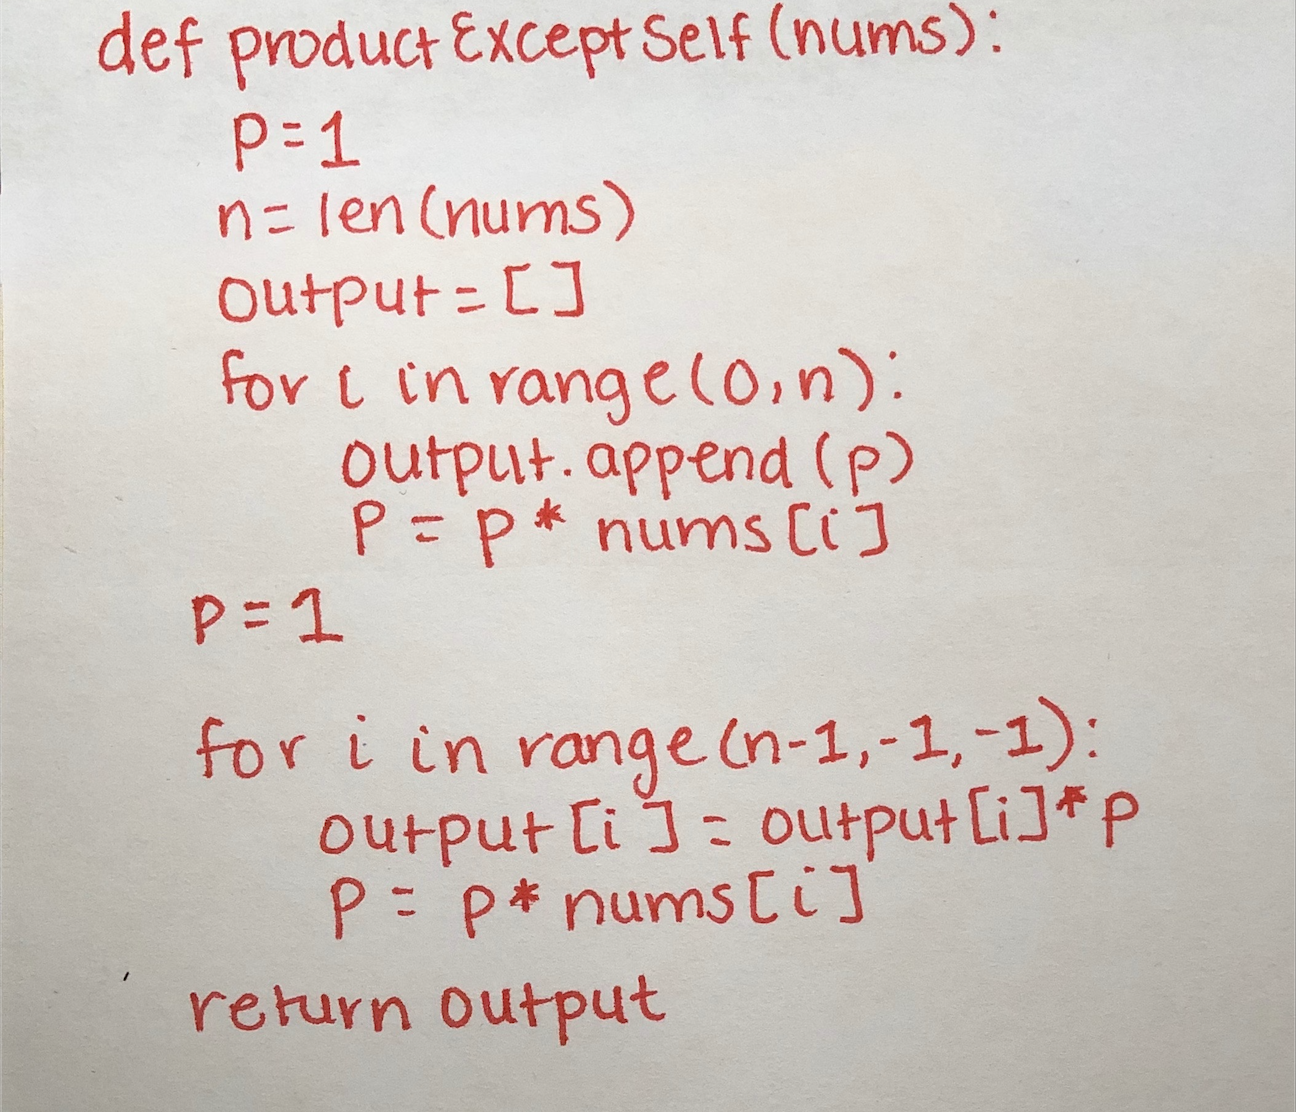 def productExceptSelf(nums):
p=1
n=len(nums)
output=[]
for i in range(0,n):
output.append(p)
p=p*nums[i]
p=1
for i in range(n-1,-1,-1):
output[i]=output[i]*p
p=p*nums[i]
return output